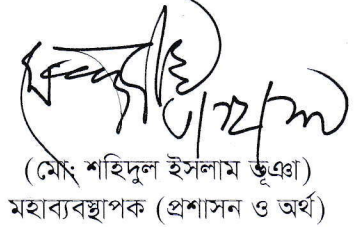 (মোঃ শহিদুল ইসলাম ভূঞা)
মহাব্যবস্থাপক (প্রশাসন ও অর্থ)